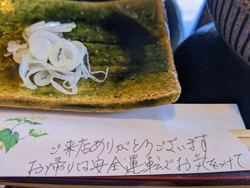 ご来店ありがとうございます
お帰りは安全運転でお気をつけて